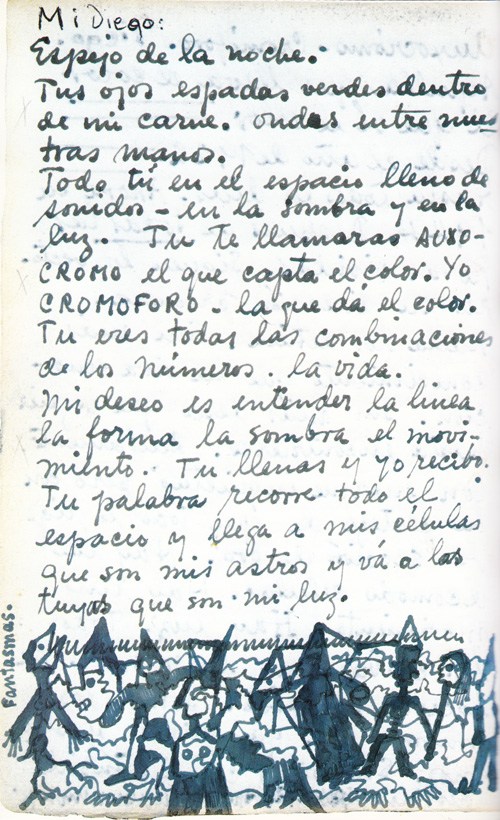 Mi Diego:
Espejo de la noche.
Tus ojos espadas verdes dentro
de mi carne. ondas entre nues-
tras manos.
Todo tú en el espacio lleno de
sonidos – en la sombra y en la
luz. Tu te llamaras AUXO-
CROMO el que capta el color. Yo
CROMOFORO - la que dá el color.
Tu eres todas las combinaciones
de los números. la vida.
Mi deseo es entender la linea
la forma la sombra el movi-
miento. Tu llenas y yo recibo.
Tu palabra recorre todo el
espacio y llega a mis células
que son mis astros y vá a las
tuyas que son mi luz.
Fantasmas.